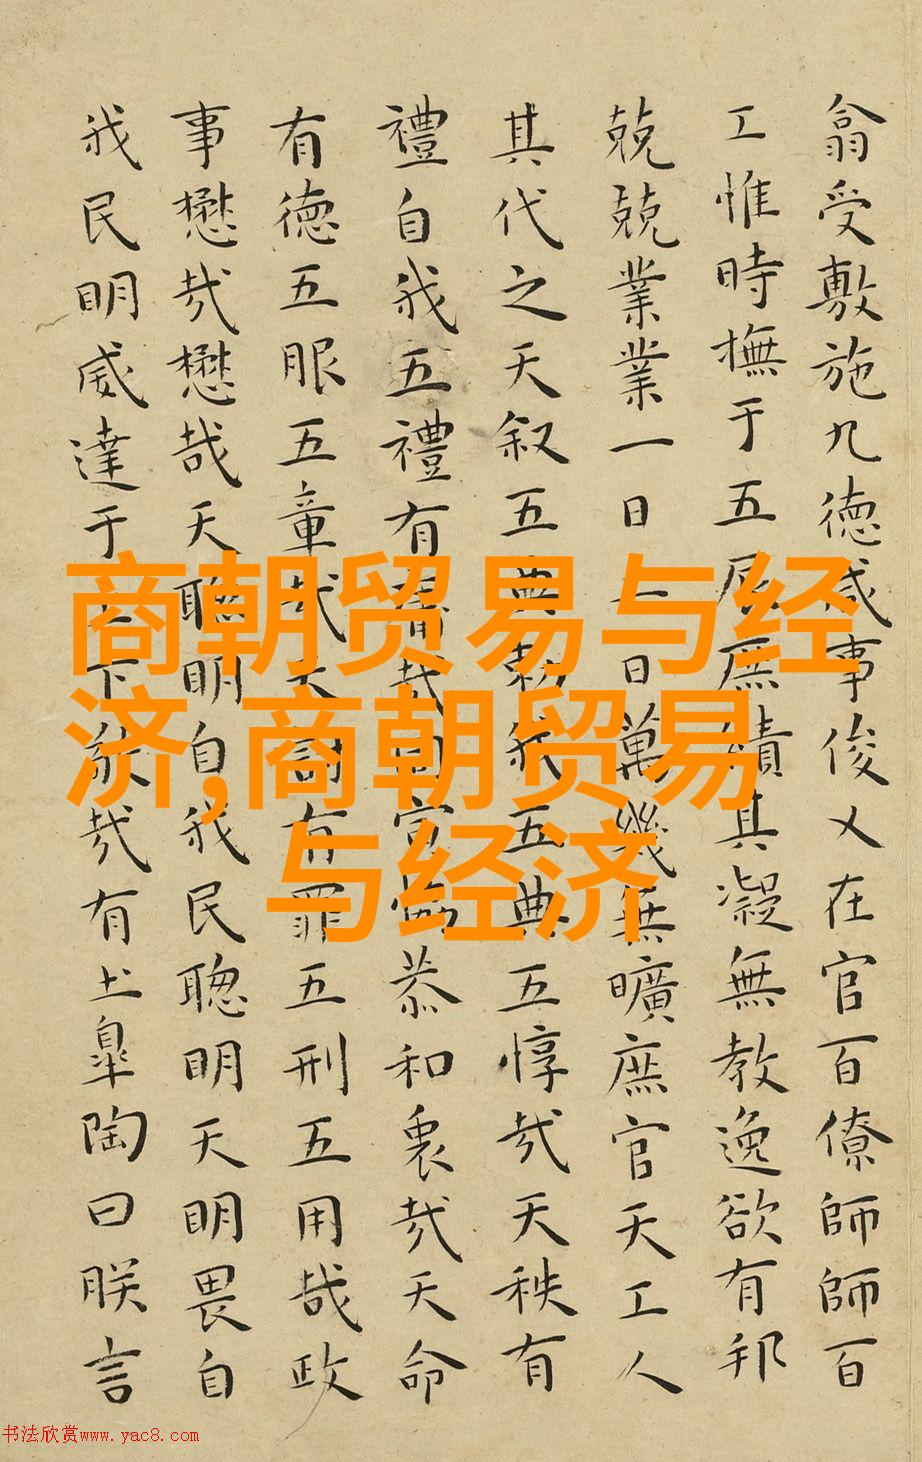 翕受敷施九德咸事俊乂在官百僚師師百
工惟時撫于五辰庶績其凝無教逸欲有邦
兢兢業業一日二日萬幾無曠庶官天工人
其代之天叙五典勑我五典五惇哉天秩有
禮自我五禮有庸哉同寅協恭和衷哉天命
有德五服五章哉天討有罪五刑五用哉政
事懋哉懋哉天聰明自我民聰明天明畏自
我民明威達于上下敬哉有土皐陶曰朕言
商朝贸易与经
济,商朝贸易
与经济
书法欣赏www.yac8.com